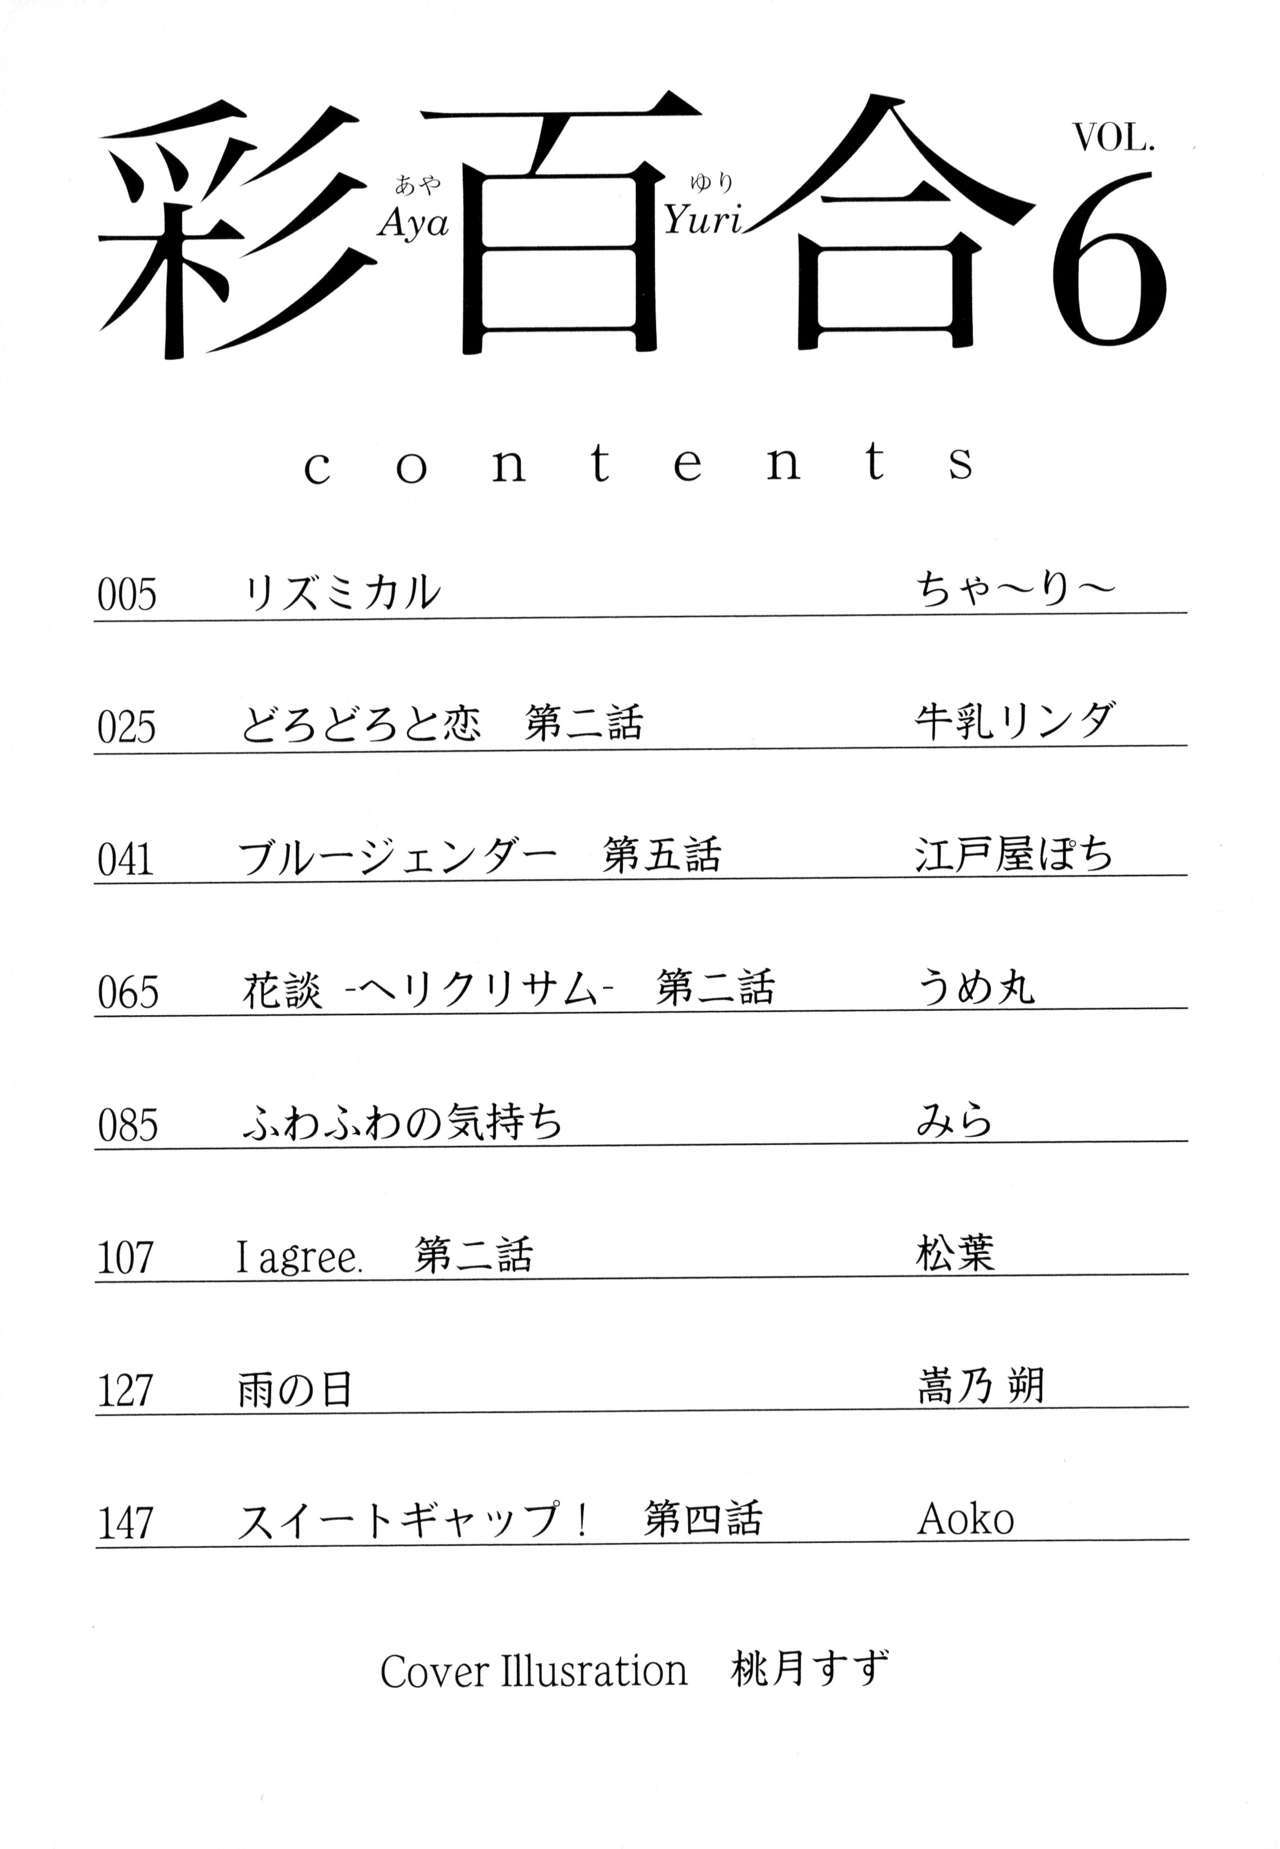 彩百合 VOL. 6
あや ゆり
Aya Yuri
contents
005 リズミカル ちゃ～り～
025 どろどろと恋 第二話 牛乳リンダ
041 ブルージェンダー 第五話 江戸屋ぽち
065 花談 -ヘリクリサム- 第二話 うめ丸
085 ふわふわの気持ち みら
107 I agree. 第二話 松葉
127 雨の日 嵩乃 朔
147 スイートギャップ！ 第四話 Aoko
Cover Illusration 桃月すず